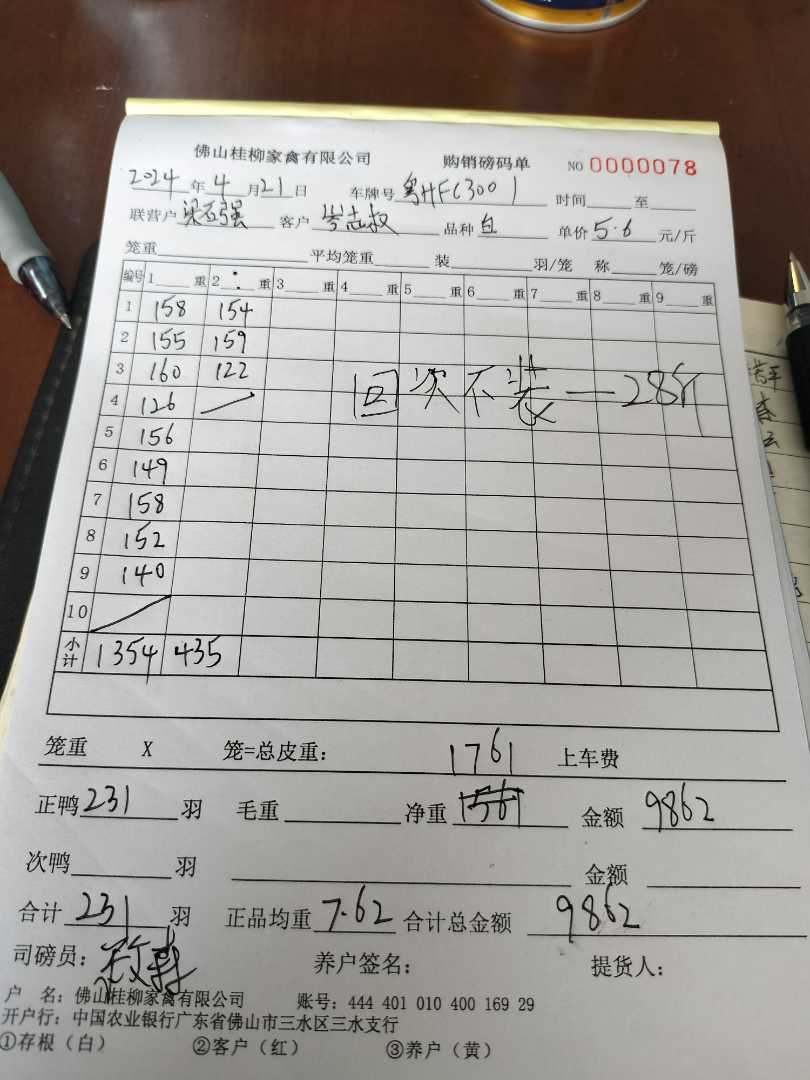 佛山桂柳家禽有限公司 购销磅码单 NO 0000078
2024年4月21日 车牌号 粤HFC3001 时间 至
联营户 强 客户 岑志叔 品种 白 单价 5.6 元/斤
笼重 平均笼重 装 羽/笼 称 笼/磅
编号 1 重 2 重 3 重 4 重 5 重 6 重 7 重 8 重 9 重
1 158 154
2 155 159
3 160 122 回次不装一28斤
4 126
5 156
6 149
7 158
8 152
9 140
10
小计 1354 435
笼重 X 笼=总皮重: 1761 上车费
正鸭 231 羽 毛重 净重 金额 9862
次鸭 羽 金额
合计 231 羽 正品均重 7.62 合计总金额 9862
司磅员: 养户签名: 提货人:
户 名: 佛山桂柳家禽有限公司 账号: 444 401 010 400 169 29
开户行: 中国农业银行广东省佛山市三水区三水支行
①存根（白） ②客户（红） ③养户（黄）